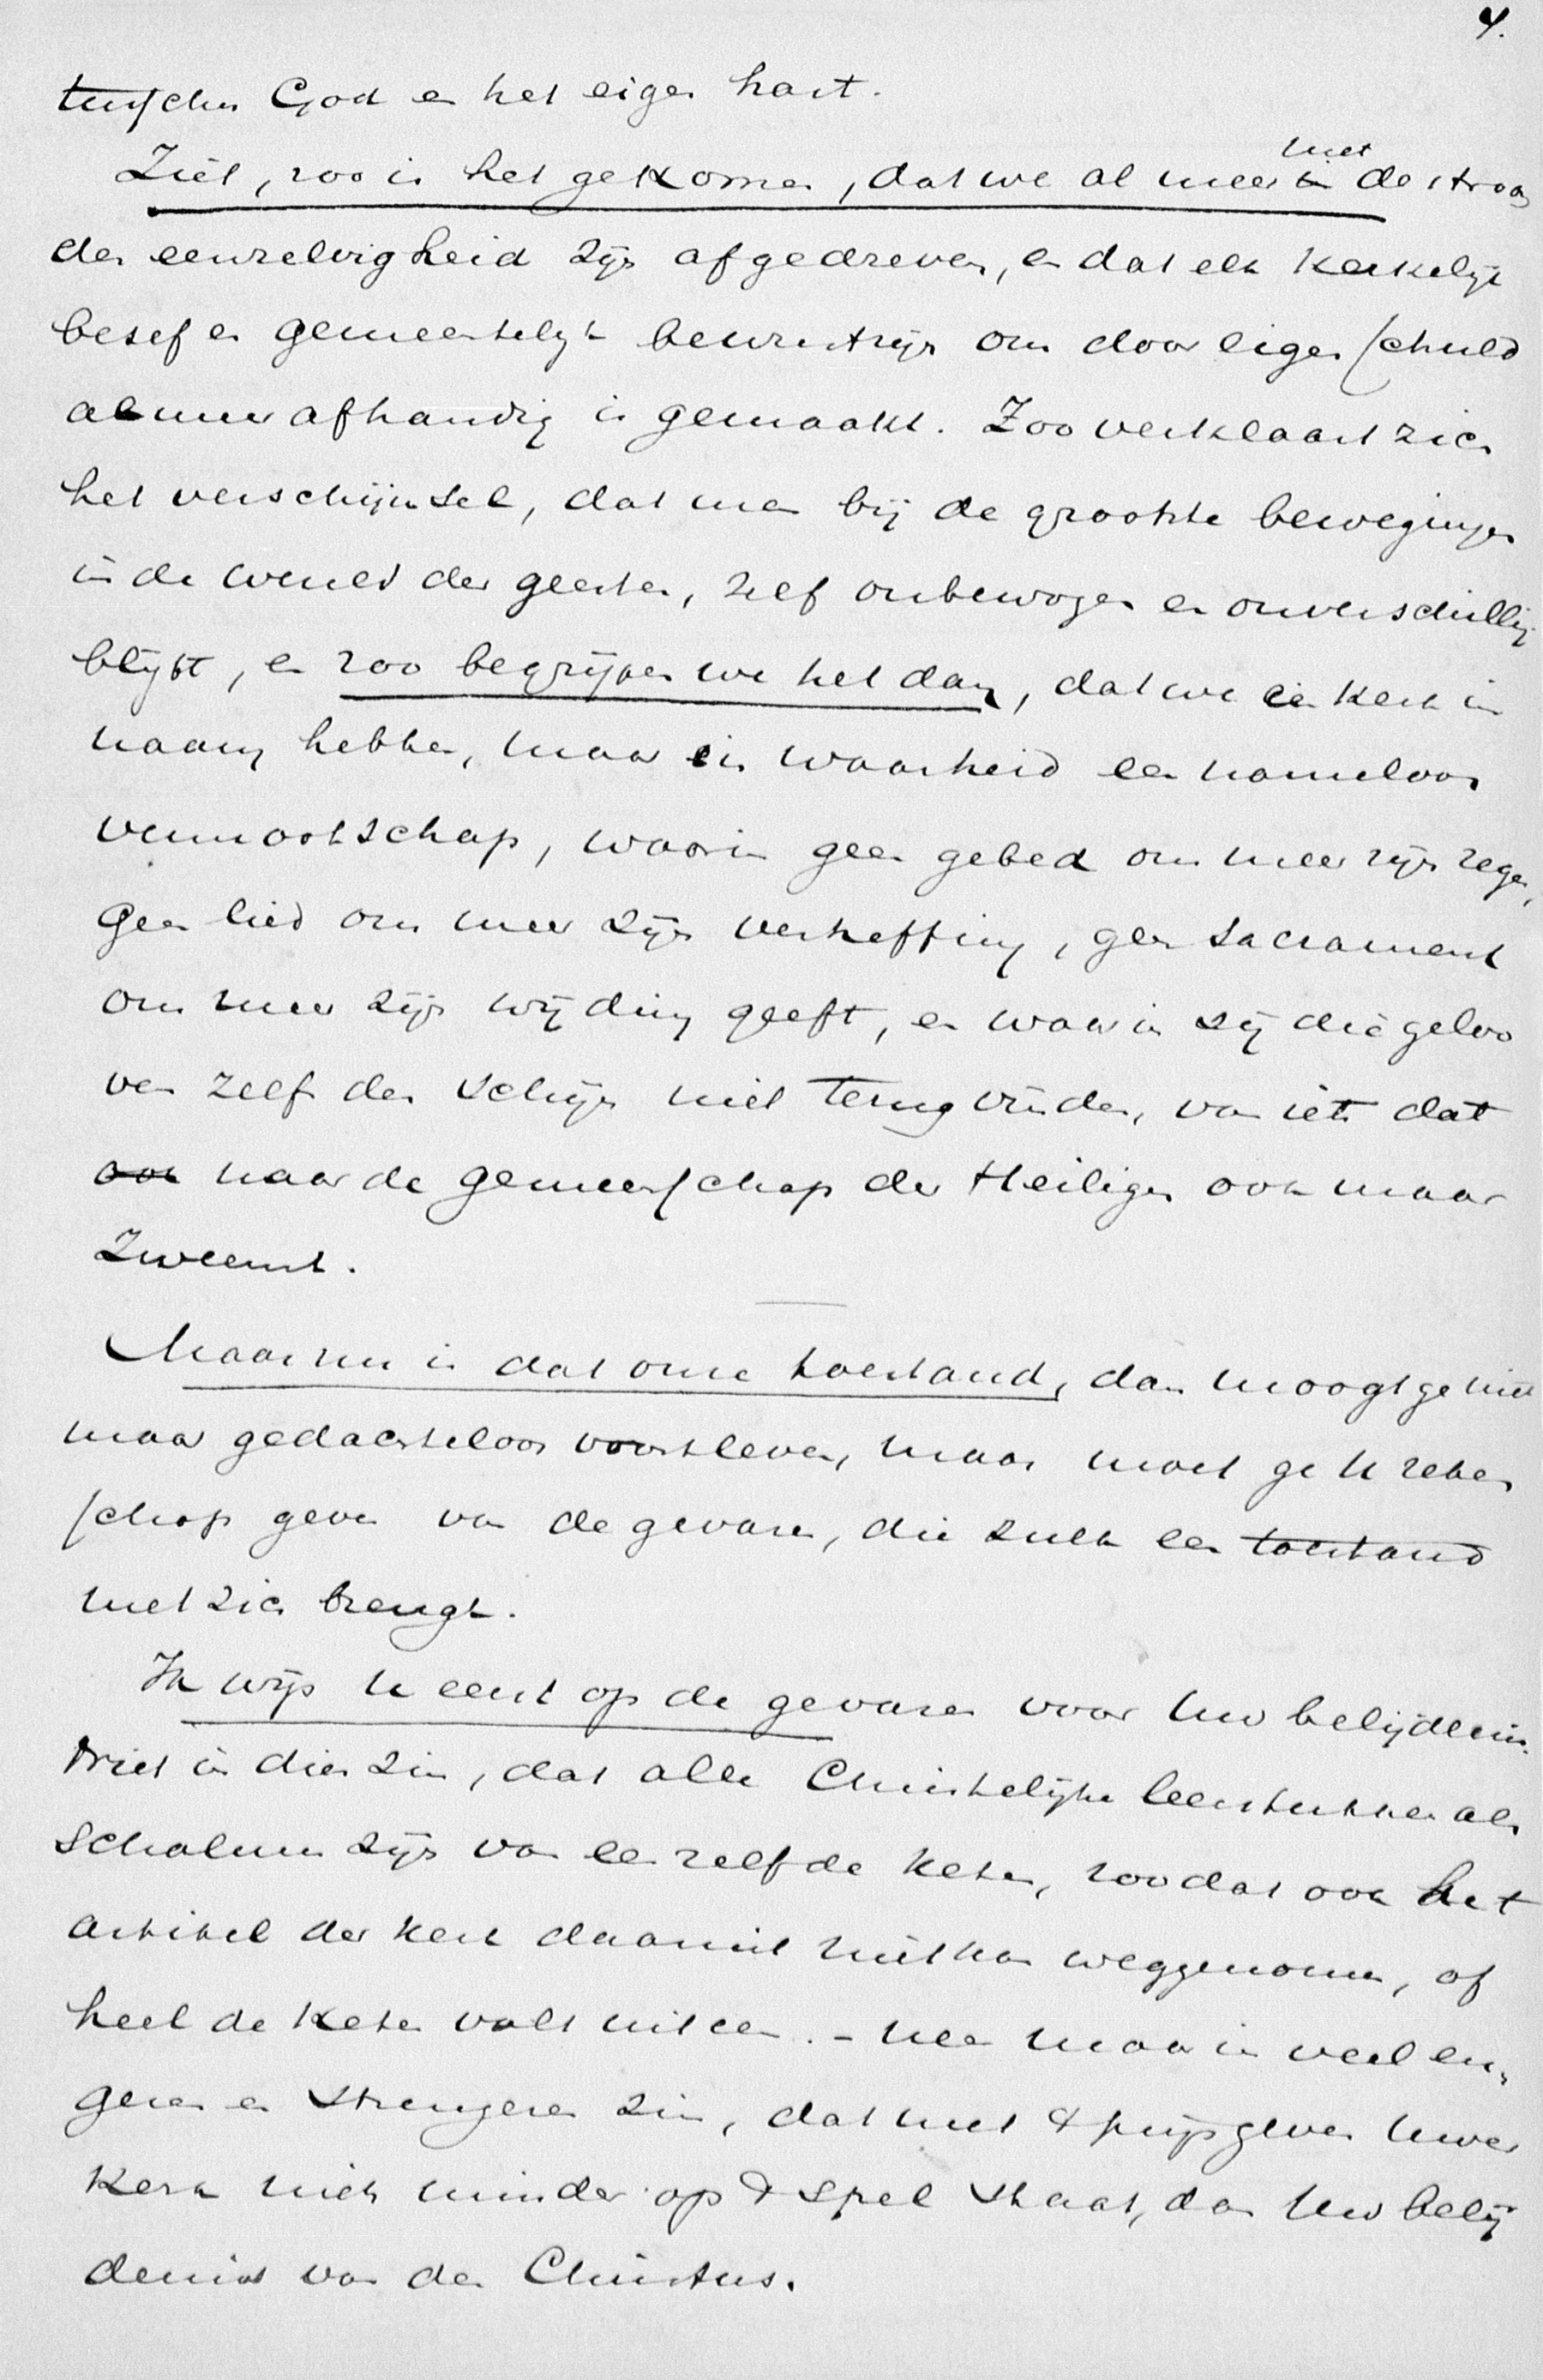 4.
tusschen God en het eigen hart.
Ziet, zoo is het gekomen, dat we al meer in met de stroom
der eenzelvigheid zijn afgedreven, en dat elk kerkelijk
besef en gemeentelijk bewustzijn ons door eigen schuld
al meer afhandig is gemaakt. Zoo verklaart zich
het verschijnsel, dat men bij de grootste bewegingen
in de wereld der geesten, zelf onbewogen en onverschillig
blijft, en zoo begrijpen we het dan, dat we één kerk in
naam hebben, maar in waarheid een nameloos
vennootschap, waarin geen gebed ons meer zijn zegen,
geen lied ons meer zijn verheffing, geen sacrament
ons meer zijn wijding geeft, en waarin zij die geloo
ven zelfs den schijn niet terugvinden, van iets dat
ook naar de gemeenschap der Heiligen ook maar
zweemt.
Maar nu is dat onze toestand, dan moogt ge niet
maar gedachteloos voortleven, maar moet ge U reken
schap geven van de gevaren, die zulk een toestand
met zich brengt.
Ik wijs U eerst op de gevaren voor Uw belijdenis.
Niet in dien zin, dat alle Christelijke leerstukken als
schalmen zijn van eenzelfde keten, zoodat ook het
artikel der kerk daaruit niet kan weggenomen, of
heel de keten valt uiteen. – Neen maar in veel en,
geren en strengeren zin, dat met 't prijsgeven Uwer
kerk niets minder op 't spel staat, dan Uw belij
denis van den Christus.